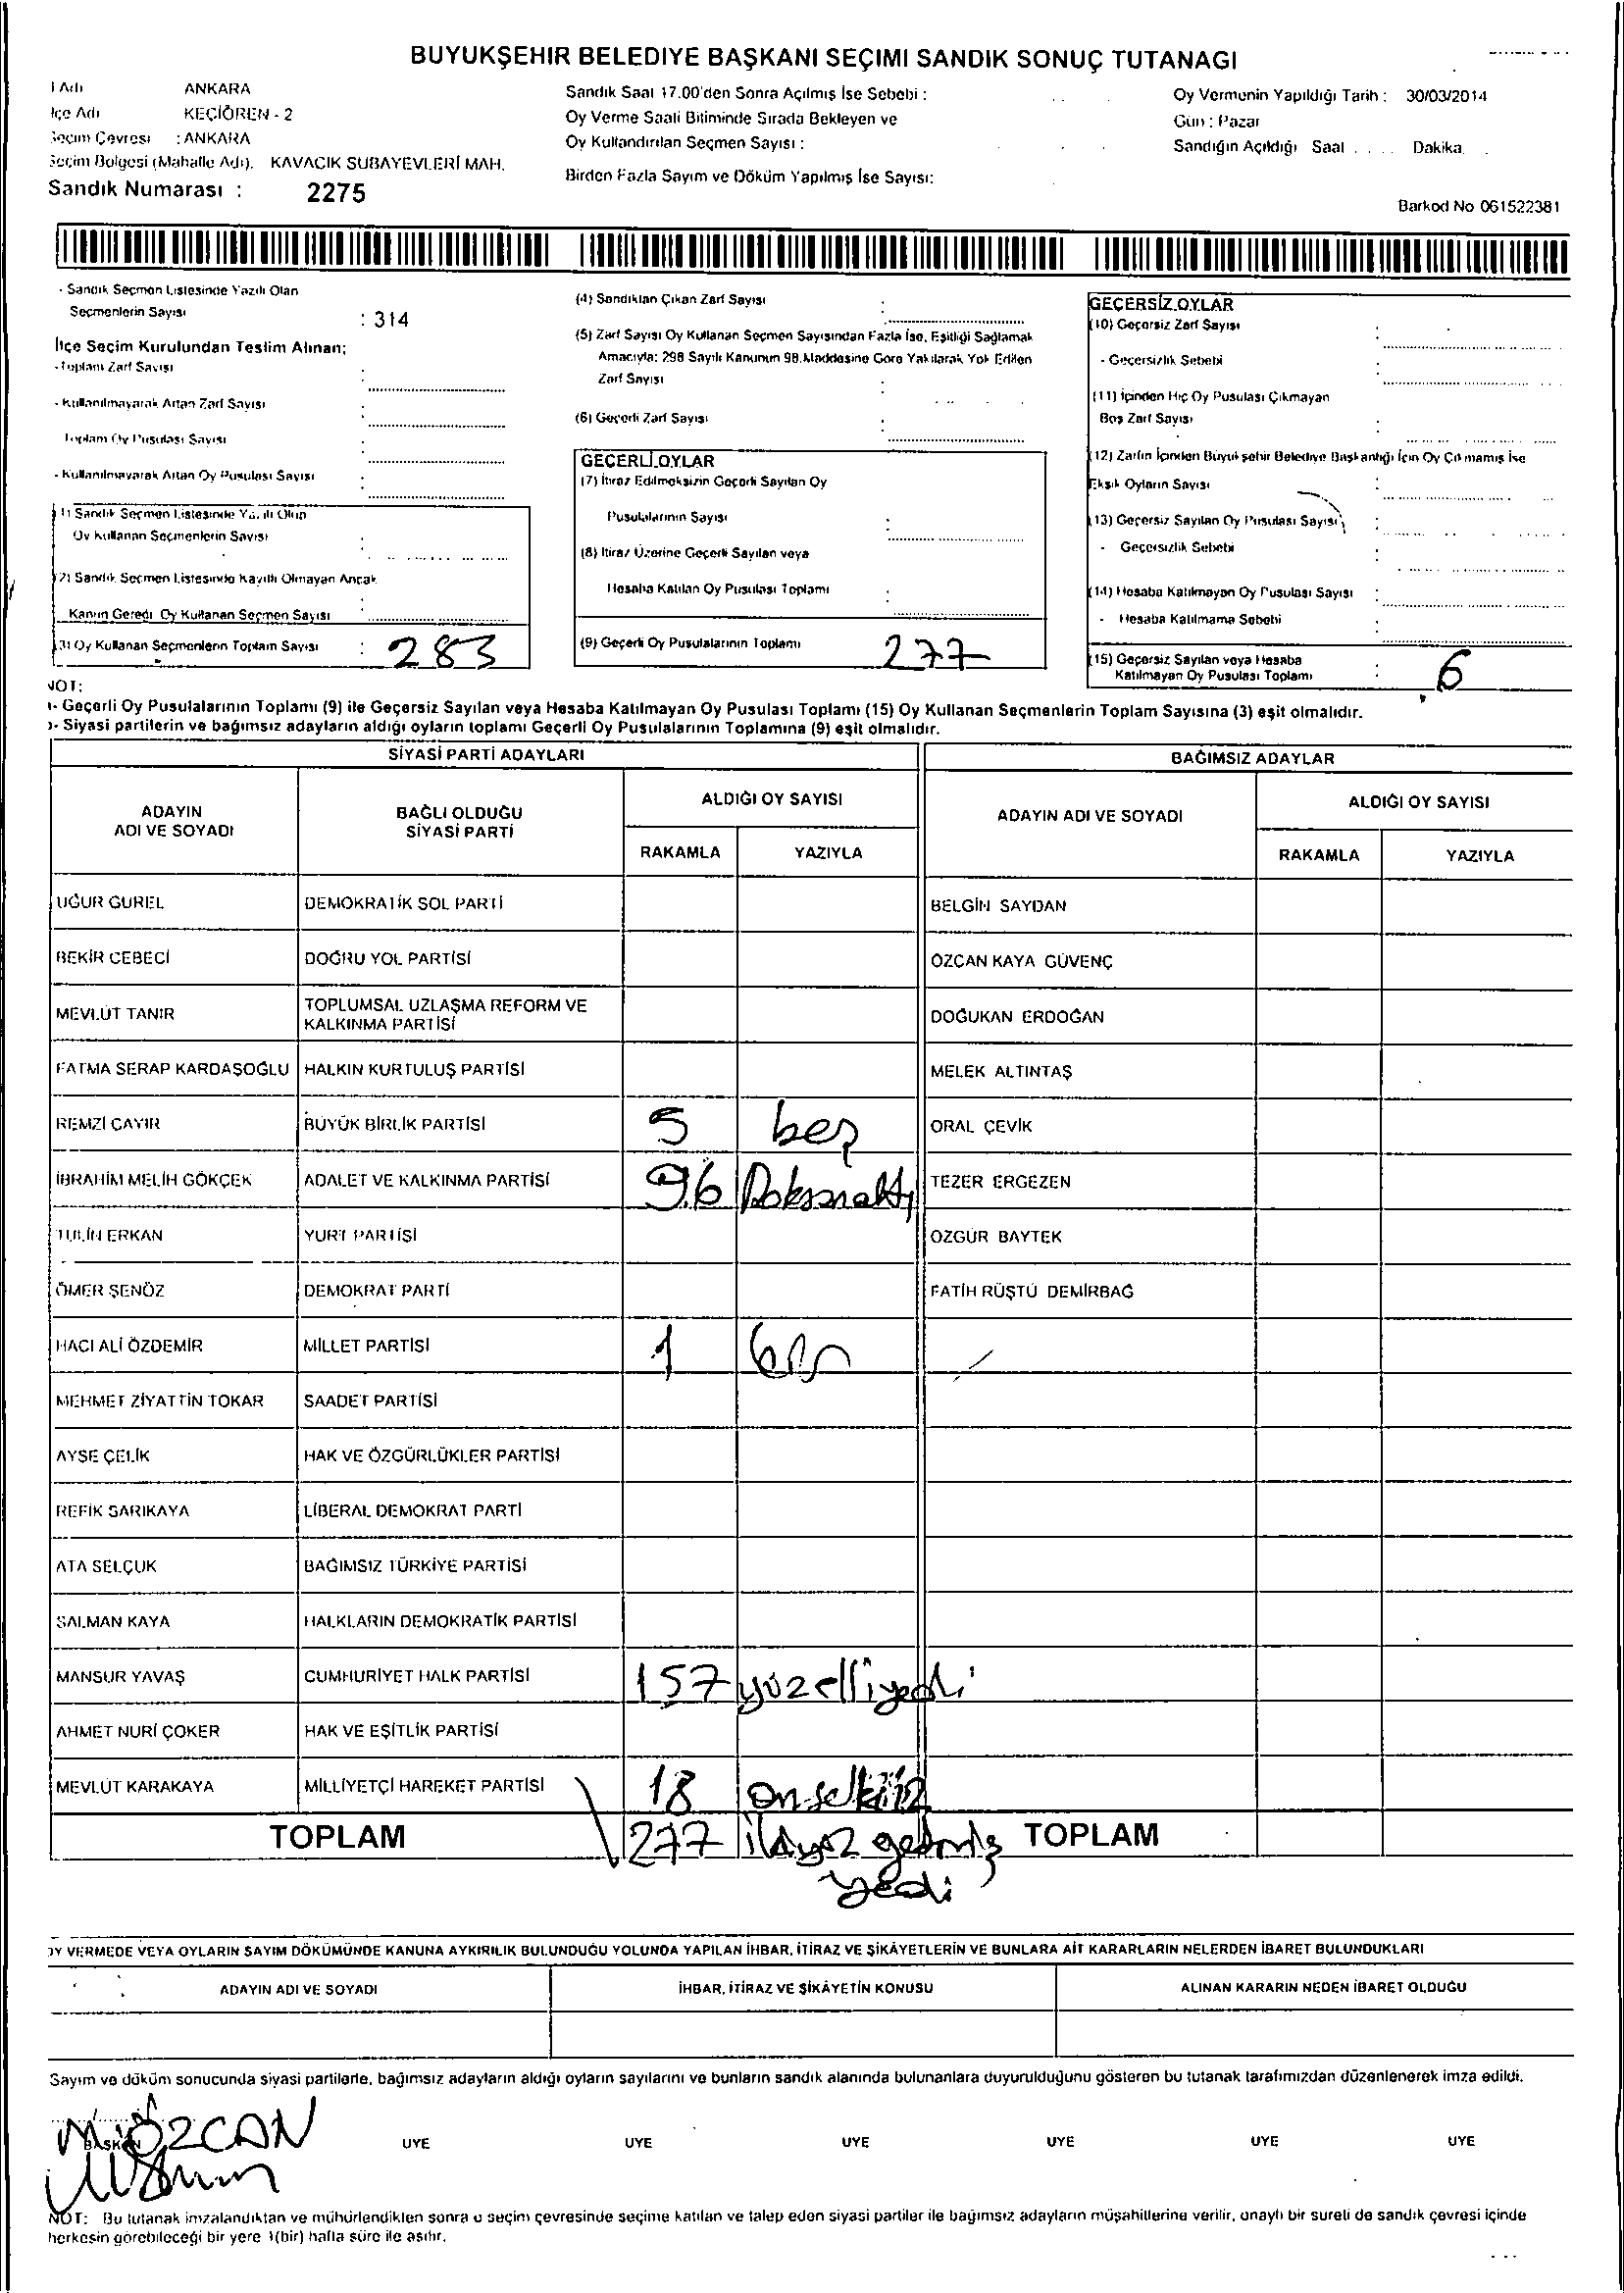 BUYUKŞEHIR BELEDIYE BAŞKANI SEÇIMI SANDIK SONUÇ TUTANAGI
l Adı ANKARA
lçe Adı KEÇİÖREN - 2
Seçim Çevresi : ANKARA
Seçim Bölgesi (Mahalle Adı). KAVACIK SUBAYEVLERİ MAH.
Sandık Numarası : 2275
Sandık Saat 17.00'den Sonra Açılmış İse Sebebi :
Oy Verme Saati Bitiminde Sırada Bekleyen ve
Oy Kullandırılan Seçmen Sayısı :
Birden Fazla Sayım ve Döküm Yapılmış İse Sayısı:
Oy Vermenin Yapıldığı Tarih : 30/03/2014
Gün : Pazar
Sandığın Açıldığı Saat .... Dakika.
Barkod No 061522381
- Sandık Seçmen Listesinde Yazılı Olan
Seçmenlerin Sayısı : 314
İlçe Seçim Kurulundan Teslim Alınan;
- Toplam Zarf Sayısı :
- Kullanılmayarak Artan Zarf Sayısı :
Toplam Oy Pusulası Sayısı :
- Kullanılmayarak Artan Oy Pusulası Sayısı :
1) Sandık Seçmen Listesinde Yazılı Olup
Oy Kullanan Seçmenlerin Sayısı :
2) Sandık Seçmen Listesinde Kayıtlı Olmayan Ancak
Kanun Gereği Oy Kullanan Seçmen Sayısı :
3) Oy Kullanan Seçmenlerin Toplam Sayısı : 283
(4) Sandıktan Çıkan Zarf Sayısı :
(5) Zarf Sayısı Oy Kullanan Seçmen Sayısından Fazla İse, Eşitliği Sağlamak
Amacıyla: 298 Sayılı Kanunun 98.Maddesine Göre Yakılarak Yok Edilen
Zarf Sayısı :
(6) Geçerli Zarf Sayısı :
GEÇERLİ OYLAR
(7) İtiraz Edilmeksizin Geçerli Sayılan Oy
Pusulalarının Sayısı :
(8) İtiraz Üzerine Geçerli Sayılan veya
Hesaba Katılan Oy Pusulası Toplamı :
(9) Geçerli Oy Pusulalarının Toplamı 277
GEÇERSİZ OYLAR
(10) Geçersiz Zarf Sayısı :
- Geçersizlik Sebebi :
(11) İçinden Hiç Oy Pusulası Çıkmayan
Boş Zarf Sayısı :
(12) Zarfın İçinden Büyükşehir Belediye Başkanlığı İçin Oy Çıkmamış İse
Eksik Oyların Sayısı :
(13) Geçersiz Sayılan Oy Pusulası Sayısı :
- Geçersizlik Sebebi :
(14) Hesaba Katılmayan Oy Pusulası Sayısı :
- Hesaba Katılmama Sebebi :
(15) Geçersiz Sayılan veya Hesaba
Katılmayan Oy Pusulası Toplamı : 6
NOT:
- Geçerli Oy Pusulalarının Toplamı (9) ile Geçersiz Sayılan veya Hesaba Katılmayan Oy Pusulası Toplamı (15) Oy Kullanan Seçmenlerin Toplam Sayısına (3) eşit olmalıdır.
- Siyasi partilerin ve bağımsız adayların aldığı oyların toplamı Geçerli Oy Pusulalarının Toplamına (9) eşit olmalıdır.
SİYASİ PARTİ ADAYLARI BAĞIMSIZ ADAYLAR
ADAYIN ADI VE SOYADI BAĞLI OLDUĞU SİYASİ PARTİ ALDIĞI OY SAYISI ADAYIN ADI VE SOYADI ALDIĞI OY SAYISI
RAKAMLA YAZIYLA RAKAMLA YAZIYLA
UĞUR GUREL DEMOKRATİK SOL PARTİ BELGİN SAYDAN
BEKİR CEBECİ DOĞRU YOL PARTİSİ OZCAN KAYA GÜVENÇ
MEVLÜT TANIR TOPLUMSAL UZLAŞMA REFORM VE KALKINMA PARTİSİ DOĞUKAN ERDOĞAN
FATMA SERAP KARDAŞOĞLU HALKIN KURTULUŞ PARTİSİ MELEK ALTINTAŞ
REMZİ ÇAYIR BÜYÜK BİRLİK PARTİSİ 5 beş ORAL ÇEVİK
İBRAHİM MELİH GÖKÇEK ADALET VE KALKINMA PARTİSİ 96 Doksanaltı TEZER ERGEZEN
TULİN ERKAN YURT PARTİSİ OZGUR BAYTEK
ÖMER ŞENÖZ DEMOKRAT PARTİ FATİH RÜŞTÜ DEMİRBAĞ
HACI ALİ ÖZDEMİR MİLLET PARTİSİ 1 bir
MEHMET ZİYATTİN TOKAR SAADET PARTİSİ
AYŞE ÇELİK HAK VE ÖZGÜRLÜKLER PARTİSİ
REFİK SARIKAYA LİBERAL DEMOKRAT PARTİ
ATA SELÇUK BAĞIMSIZ TÜRKİYE PARTİSİ
SALMAN KAYA HALKLARIN DEMOKRATİK PARTİSİ
MANSUR YAVAŞ CUMHURİYET HALK PARTİSİ 157 yüzelliyedi
AHMET NURİ ÇOKER HAK VE EŞİTLİK PARTİSİ
MEVLÜT KARAKAYA MİLLİYETÇİ HAREKET PARTİSİ 18 onsekiz
TOPLAM 277 ikiyüz yetmiş TOPLAM
yedi
OY VERMEDE VEYA OYLARIN SAYIM DÖKÜMÜNDE KANUNA AYKIRILIK BULUNDUĞU YOLUNDA YAPILAN İHBAR, İTİRAZ VE ŞİKÂYETLERİN VE BUNLARA AİT KARARLARIN NELERDEN İBARET BULUNDUKLARI
ADAYIN ADI VE SOYADI İHBAR, İTİRAZ VE ŞİKÂYETİN KONUSU ALINAN KARARIN NEDEN İBARET OLDUĞU
Sayım ve döküm sonucunda siyasi partilerle, bağımsız adayların aldığı oyların sayılarını ve bunların sandık alanında bulunanlara duyurulduğunu gösteren bu tutanak tarafımızdan düzenlenerek imza edildi.
M. ÖZCAN
BAŞKAN UYE UYE UYE UYE UYE UYE
NOT: Bu tutanak imzalandıktan ve mühürlendikten sonra o seçim çevresinde seçime katılan ve talep eden siyasi partiler ile bağımsız adayların müşahitlerine verilir, onaylı bir sureti de sandık çevresi içinde
herkesin görebileceği bir yere 1(bir) hafta süre ile asılır.